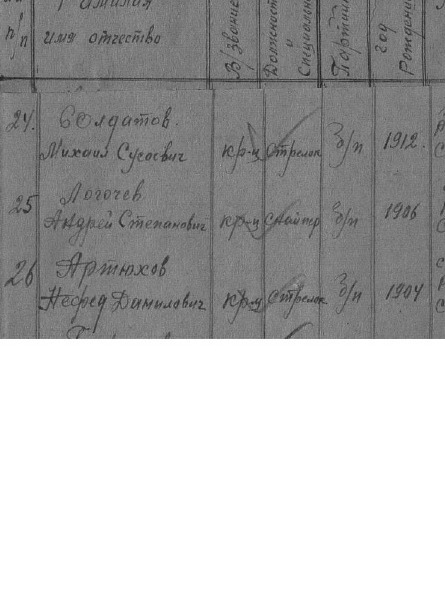 п/п
Фамилия
имя отчество
В/звание
Должность
и
Специальн
Партийн
год
Рождени
24. Солдатов.
Михаил Сусоевич кр-ц стрелок б/п 1912.
25 Логочев
Андрей Степанович кр-ц б/п 1906
26 Артюхов
Нефед Данилович кр-ц стрелок б/п 1904